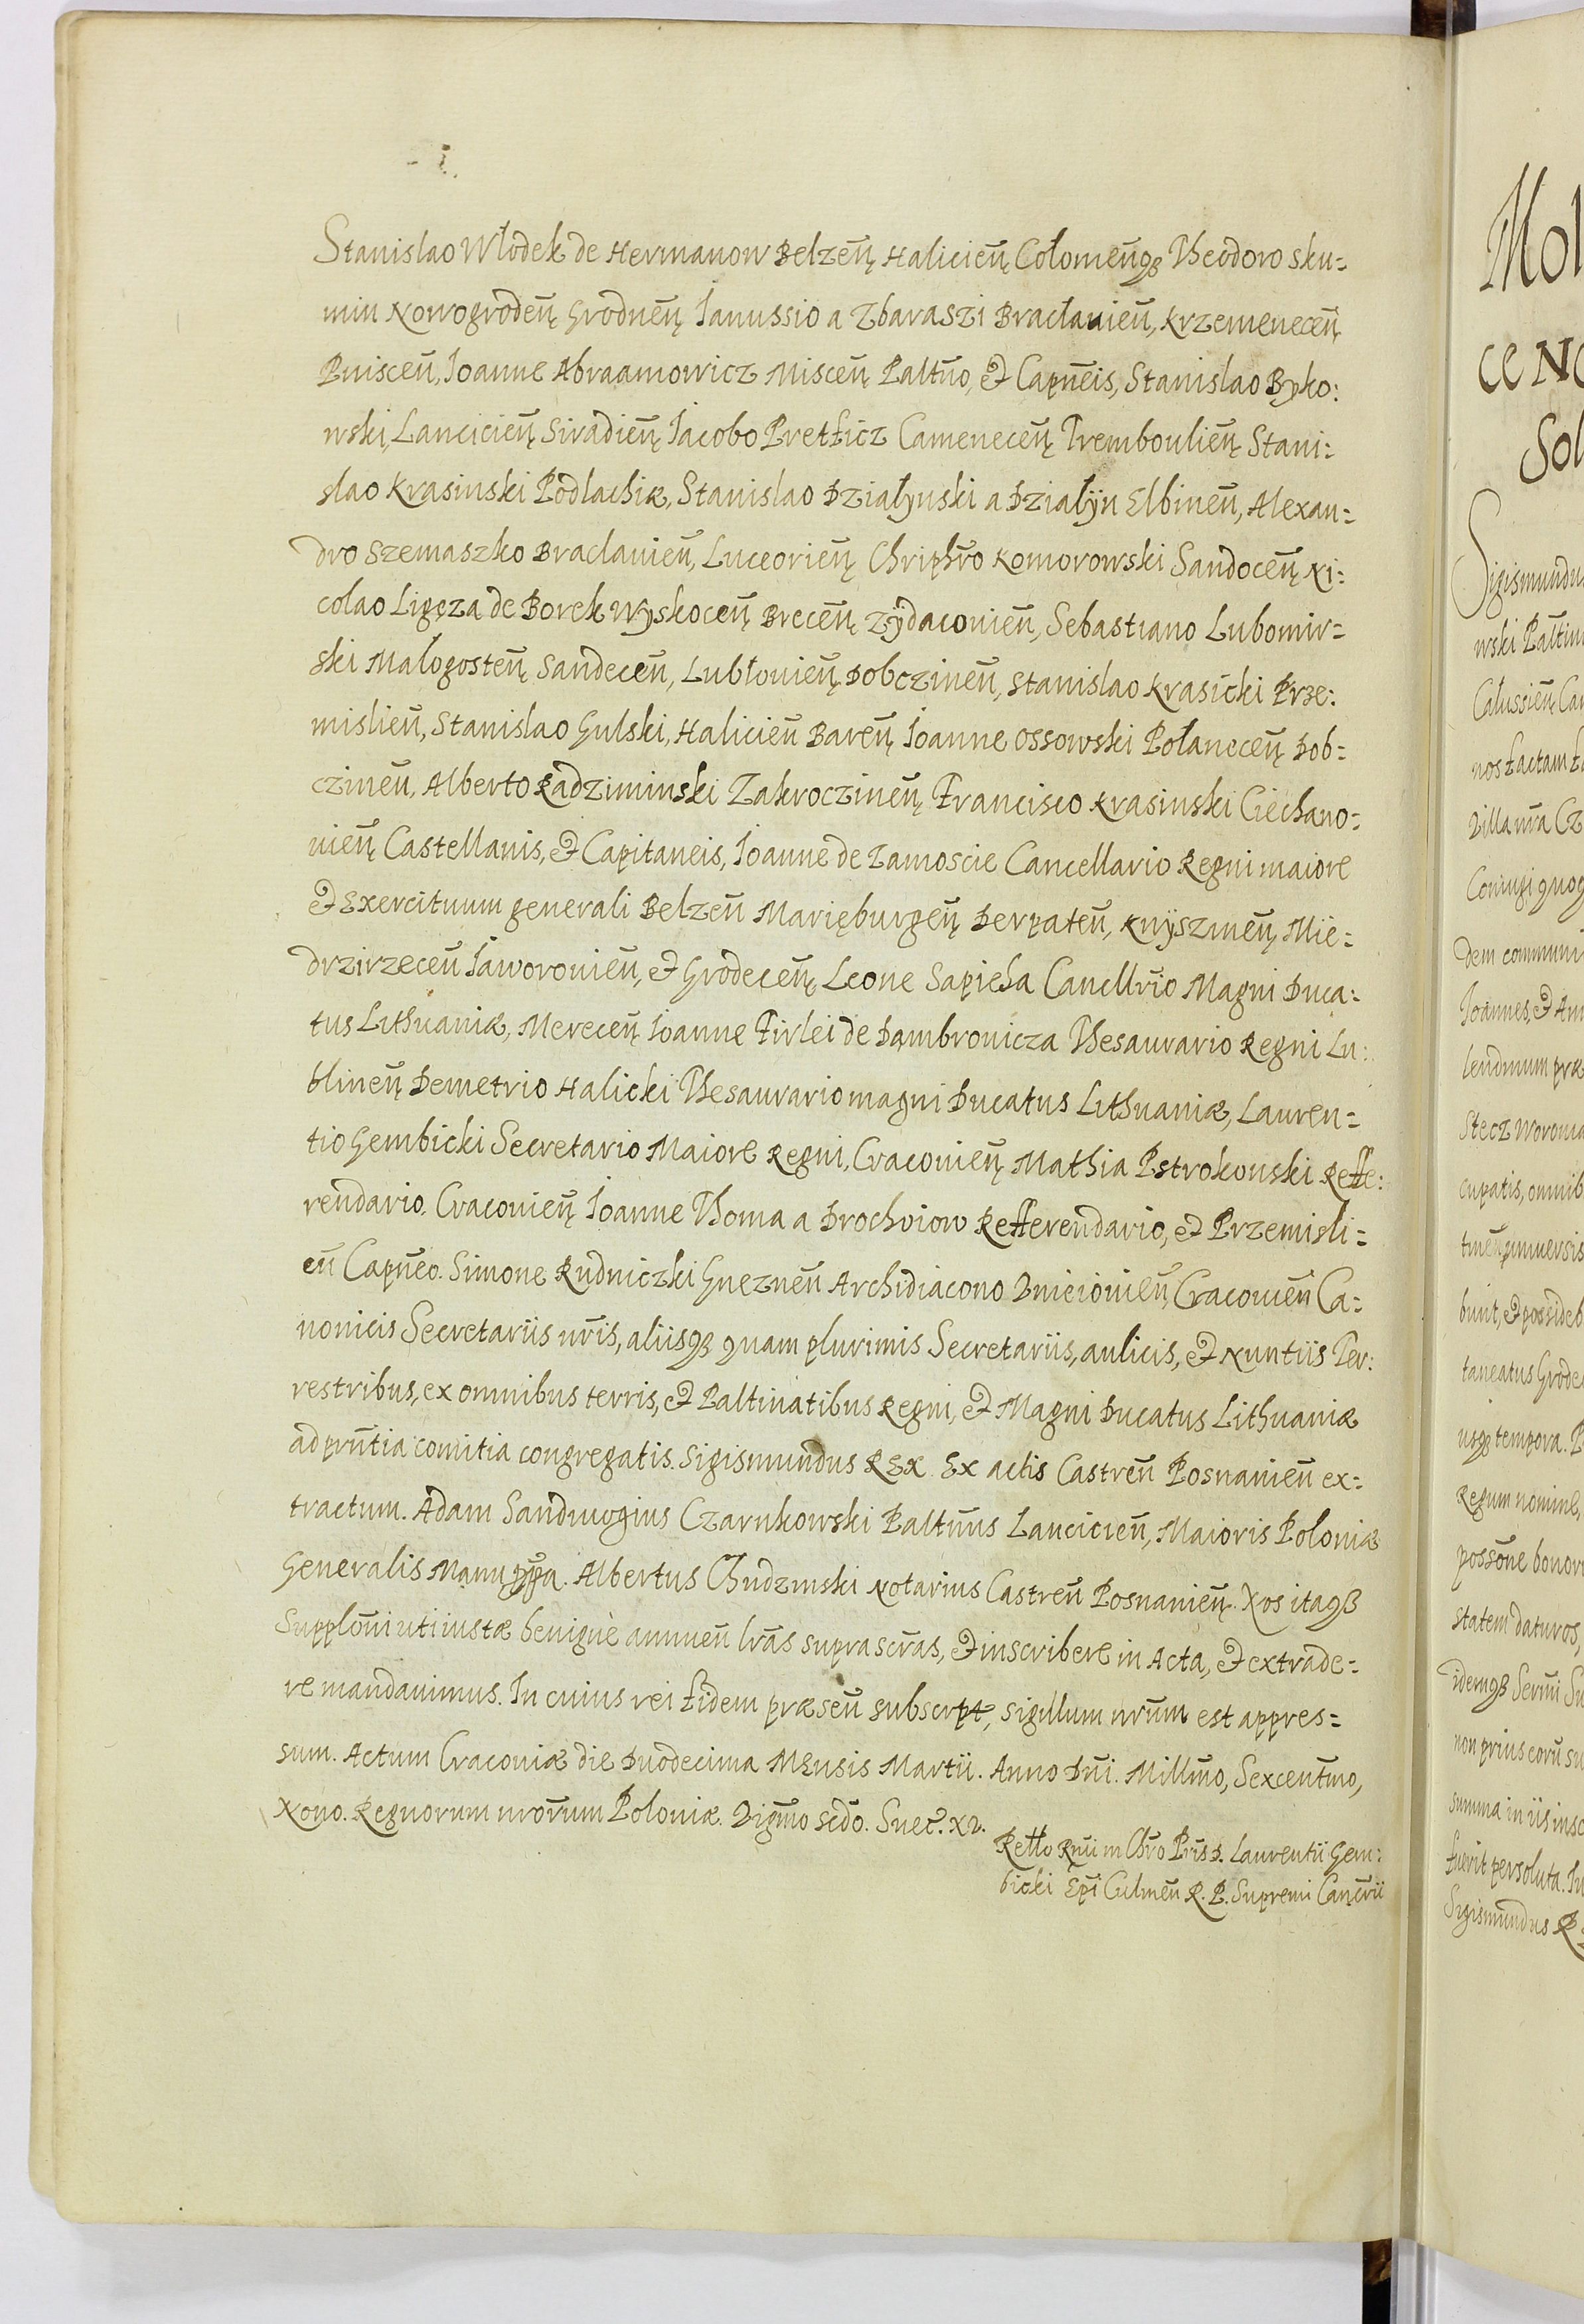 Stanislao Włodek de Hermanow Belzen̄, Halicien̄, Colomen̄q3 Theodoro Sku=
min Nowogroden̄, Grodnen̄, Ianussio a Zbaraszi Bracłauien̄, Krzemenecen̄,
Pniscen̄, Ioanne Abraamowicz Miscen̄, Paltn̄o, & Capn̄eis, Stanislao Byko:
wski, Lancicien̄, Siradien̄, Iacobo Pretficz Camenecen̄, Tremboulinē, Stani:
slao Krasinski Podlachiæ, Stanislao Działynski a Działÿn Elbinen̄, Alexan=
dro Szemaszko Braclauien̄, Luceorien̄, Chriph̄ro Komorowski Sandocen̄, Ni:
colao Ligęza de Borek Wyskocen̄, Brecen̄, Zÿdaconien̄, Sebastiano Lubomir=
ski Małogosten̄, Sandecen̄, Lubłouien̄, Dobczinen̄, Stanislao Krasicki Prze:
mislien̄, Stanislao Gulski, Halicien̄ Baren̄, Ioanne Ossowski Połanecen̄, Dob=
czinen̄, Alberto Radziminski Zakroczinen̄, Francisco Krasinski Ciechano=
uien̄, Castellanis, & Capitaneis, Ioanne de Zamoscie Cancellario Regni maiore
& Exercituum generali Belzen̄ Marięburgen̄, Derpaten̄, Knÿszinen̄, Mie=
drzirzecen̄ Iaworouien̄, & Grodecen̄, Leone Sapieha Cancllr̄io Magni Duca:
tus Lithuaniæ, Merecen̄, Ioanne Firlei de Dambrouicza Thesaurario Regni Lu:
blinen̄, Demetrio Halicki Thesaurario magni Ducatus Lithuaniæ, Lauren=
tio Gembicki Secretario Maiore Regni, Cracouien̄, Mathia Pstrokonski Reffe:
rendario. Cracouien̄, Ioanne Thoma a Drochoiow Refferendario, & Przemisli=
en̄ Capn̄eo. Simone Rudniczki Gneznen̄ Archidiacono Cracouien̄ Ca=
nonicis Secretariis nr̄is, aliisq3 quam plurimis Secretariis, aulicis, & Nuntiis Ter:
restribus, ex omnibus terris, & Paltinatibus Regni, & Magni Ducatus Lithuaniæ
ad prn̄tia comitia congregatis. Sigismundus REX. Ex actis Castren̄ Posnanien̄ ex=
tractum. Adam Sandiuogius Czarnkowski Paltn̄us Lancicien̄, Maioris Poloniæ
Generalis Manu pp̄a. Albertus Chudzinski Notarius Castren̄ Posnanien̄. Nos itaq3
Supplōni uti iustæ benignè annuen̄ lrās suprascrās, & inscribere in Acta, & extrade=
re mandauimus. In cuius rei fidem præsen̄ subscrpt, sigillum nrūm est appres=
sum. Actum Cracouiæ die Duodecima Mensis Martii. Anno Dn̄i. Millm̄o, Sexcentm̄o,
Nono. Regnorum nrōrum Poloniæ. Vigm̄o scd̄o. Suec̄. XV.
Rello Rn̄i in Chr̄o Pris D. Laurentii Gem:
bicki Ep̄i Culmen̄ R. P. Supremi Cancr̄ii
Mol
ce No
Sol
Sigismundu
wski Paltin
Całussien̄, Ca
nos factam f
Villa nrā Cz
Coniugi quoq
dem communi
Ioannes, & An
lendinum præ
Stecz Woronia
cupatis, omnib
bunt, & possideb
taneatus Grode
usq3 tempora. P
Regum nomine,
possōne bonor
statem daturos,
idemq3 Serm̄i Su
non prius eorū su
summa in iis insc
fuerit persoluta. In
Sigismundus R